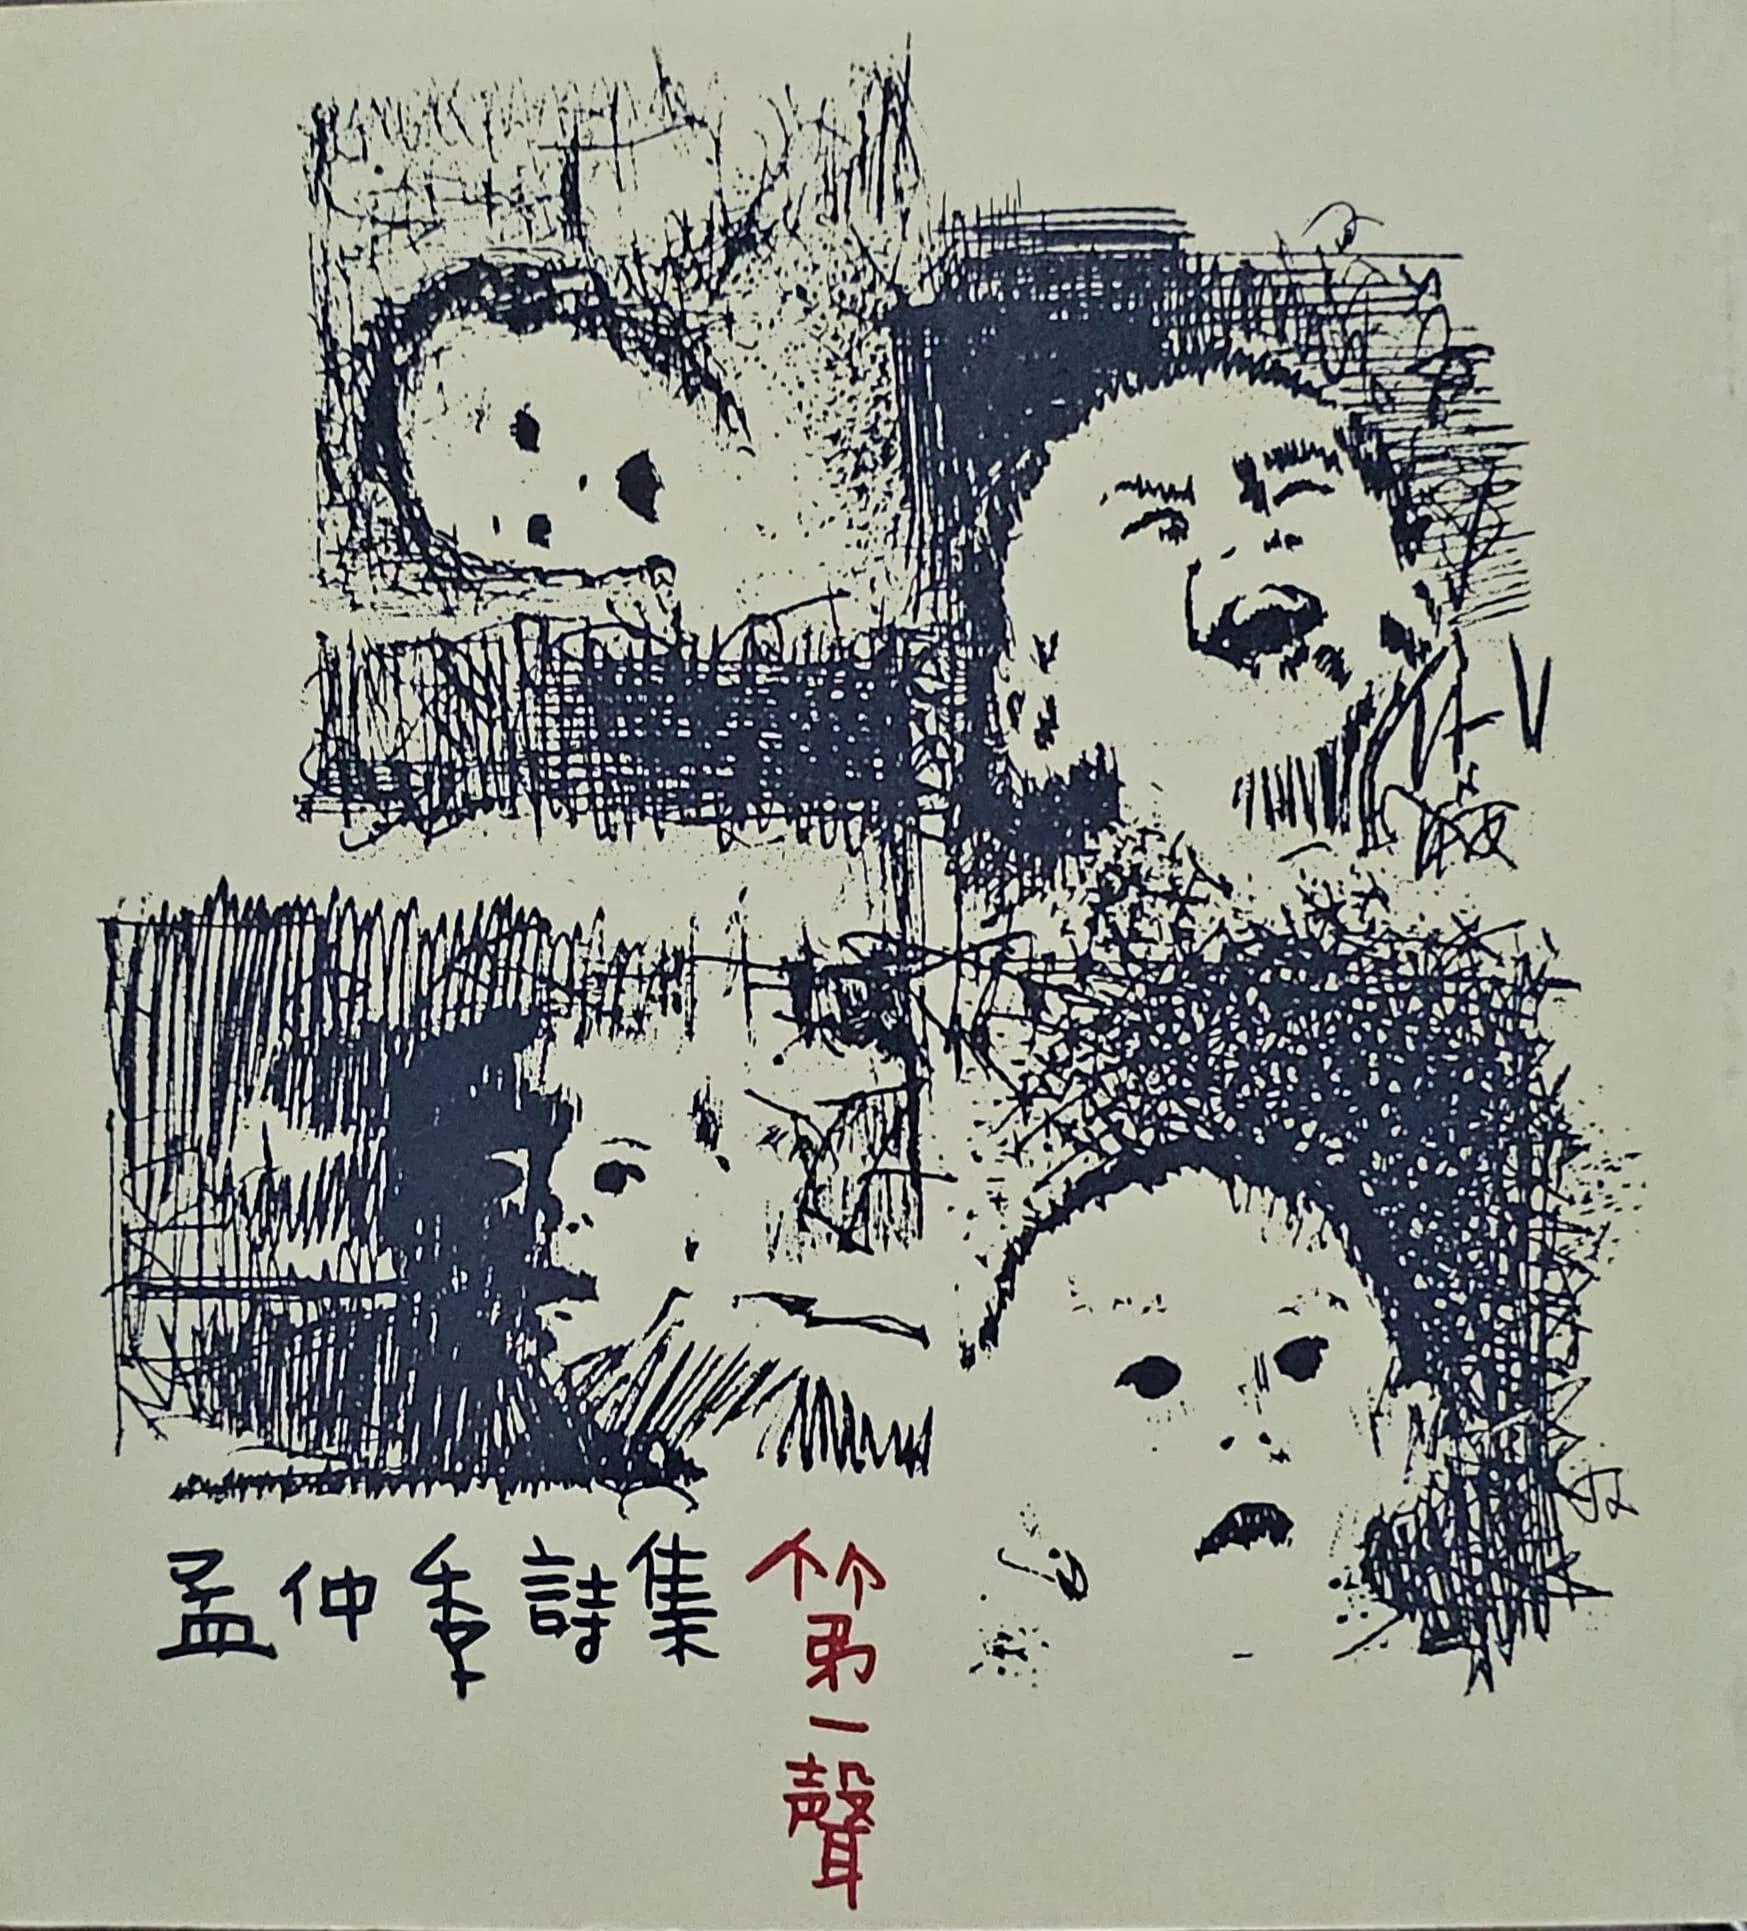 孟仲季詩集
第一聲